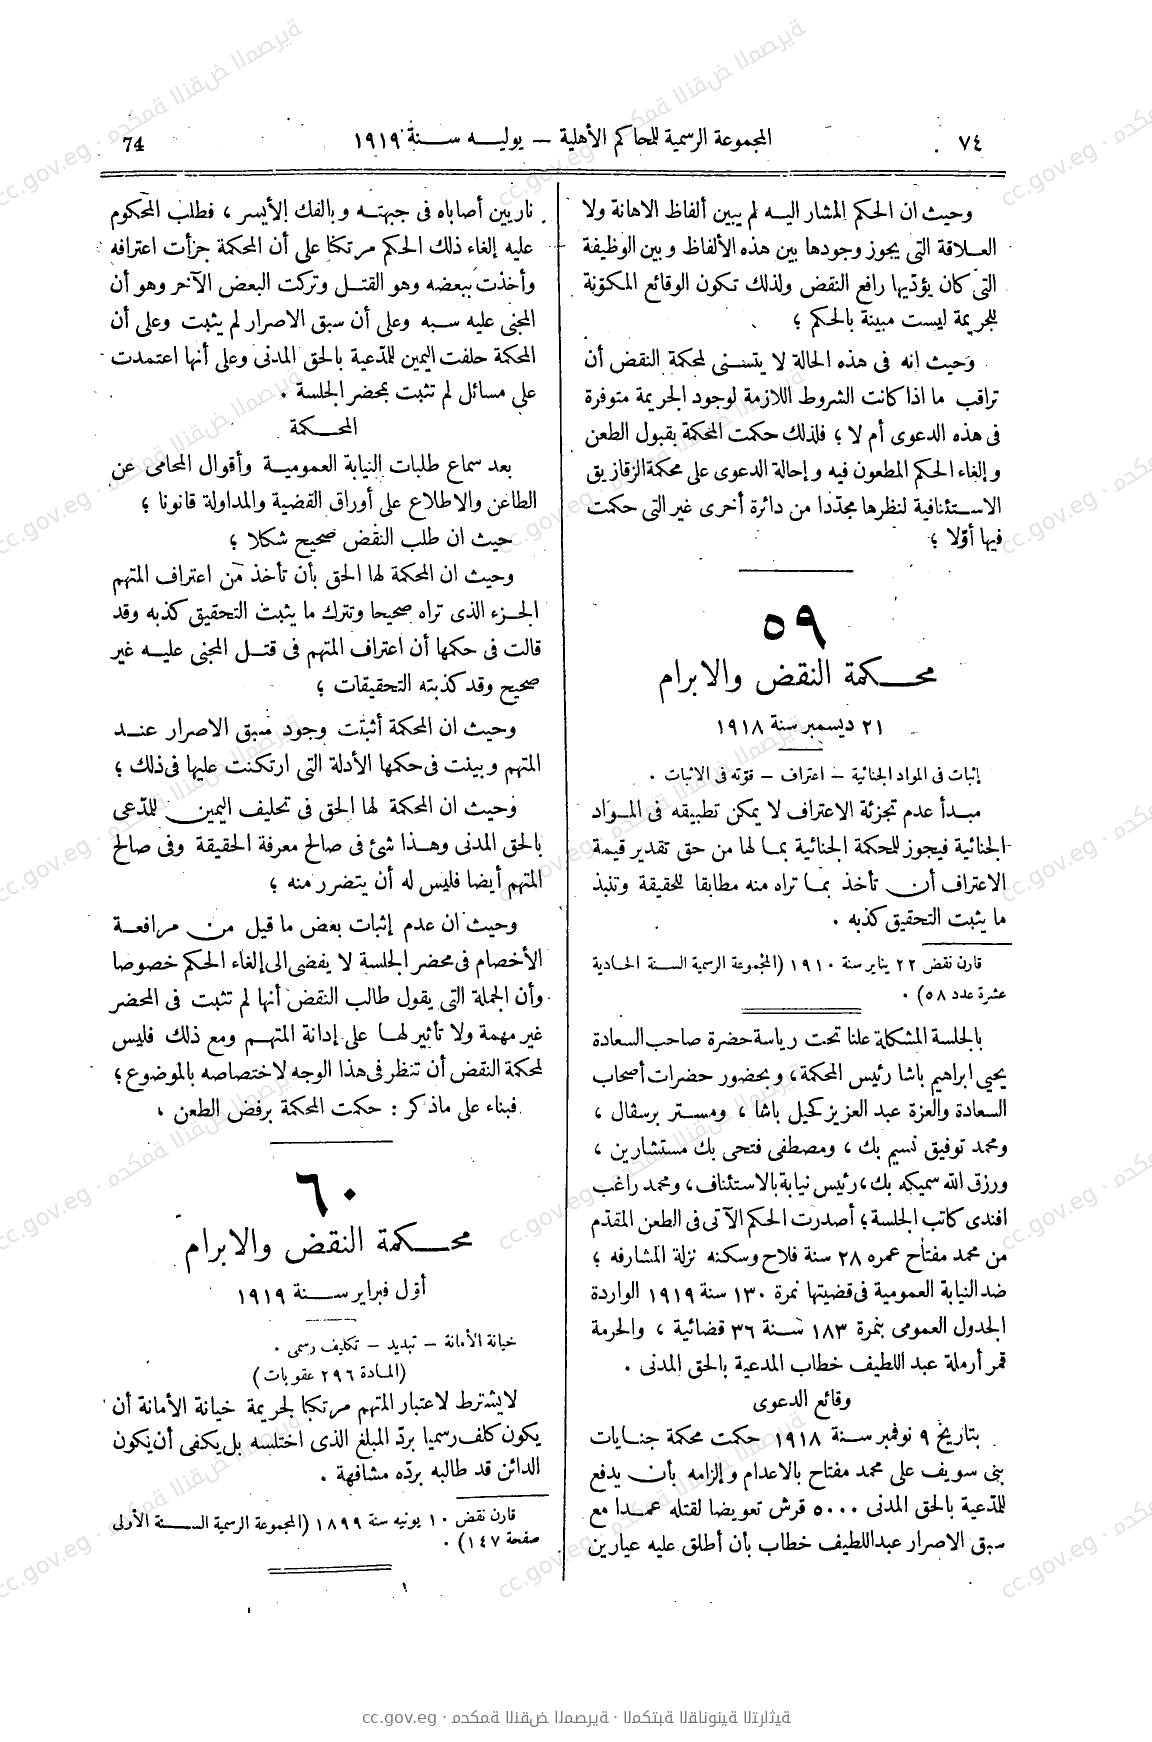 ٧٤ المجموعة الرسمية للمحاكم الأهلية – يوليه سنة ١٩١٩ 74
وحيث ان الحكم المشار اليه لم يبين ألفاظ الاهانة ولا
العلاقة التى يجوز وجودها بين هذه الألفاظ وبين الوظيفة
التى كان يؤدّيها رافع النقض ولذلك تكون الوقائع المكوّنة
للجريمة ليست مبينة بالحكم ؛
وحيث انه فى هذه الحالة لا يتسنى لمحكمة النقض أن
تراقب ما اذا كانت الشروط اللازمة لوجود الجريمة متوفرة
فى هذه الدعوى أم لا ؛ فلذلك حكمت المحكمة بقبول الطعن
وإلغاء الحكم المطعون فيه وإحالة الدعوى على محكمة الزقازيق
الاستئنافية لنظرها مجدّدا من دائرة أخرى غير التى حكمت
فيها أوّلا ؛
٥٩
محكمة النقض والابرام
٢١ ديسمبر سنة ١٩١٨
إثبات فى المواد الجنائية – اعتراف – قوّته فى الاثبات .
مبدأ عدم تجزئة الاعتراف لا يمكن تطبيقه فى المواد
الجنائية فيجوز للمحكمة الجنائية بما لها من حق تقدير قيمة
الاعتراف أن تأخذ بما تراه منه مطابقا للحقيقة وتنبذ
ما يثبت التحقيق كذبه .
قارن نقض ٢٢ يناير سنة ١٩١٠ (المجموعة الرسمية السنة الحادية
عشرة عدد ٥٨) .
بالجلسة المشكلة علنا تحت رياسة حضرة صاحب السعادة
يحيى ابراهيم باشا رئيس المحكمة، وبحضور حضرات أصحاب
السعادة والعزة عبد العزيز كحيل باشا ، ومستر برسڤال ،
ومحمد توفيق نسيم بك ، ومصطفى فتحى بك مستشارين ،
ورزق الله سميكه بك، رئيس نيابة بالاستئناف، ومحمد راغب
افندى كاتب الجلسة؛ أصدرت الحكم الآتى فى الطعن المقدّم
من محمد مفتاح عمره ٢٨ سنة فلاح وسكنه نزلة المشارفه ؛
ضد النيابة العمومية فى قضيتها نمرة ١٣٠ سنة ١٩١٩ الواردة
الجدول العمومى بنمرة ١٨٣ سنة ٣٦ قضائية ، والحرمة
قمر أرملة عبد اللطيف خطاب المدعية بالحق المدنى .
وقائع الدعوى
بتاريخ ٩ نوفمبر سنة ١٩١٨ حكمت محكمة جنايات
بنى سويف على محمد مفتاح بالاعدام وإلزامه بأن يدفع
للمدّعية بالحق المدنى ٥٠٠٠ قرش تعويضا لقتله عمدا مع
سبق الاصرار عبد اللطيف خطاب بأن أطلق عليه عيارين
ناريين أصاباه فى جبهته وبالفك الأيسر ، فطلب المحكوم
عليه إلغاء ذلك الحكم مرتكنا على أن المحكمة جزأت اعترافه
وأخذت ببعضه وهو القتل وتركت البعض الآخر وهو أن
المجنى عليه سبه وعلى أن سبق الاصرار لم يثبت وعلى أن
المحكمة حلفت اليمين للمدّعية بالحق المدنى وعلى أنها اعتمدت
على مسائل لم تثبت بمحضر الجلسة .
المحكمة
بعد سماع طلبات النيابة العمومية وأقوال المحامى عن
الطاعن والاطلاع على أوراق القضية والمداولة قانونا ؛
حيث ان طلب النقض صحيح شكلا ؛
وحيث ان المحكمة لها الحق بأن تأخذ من اعتراف المتهم
الجزء الذى تراه صحيحا وتترك ما يثبت التحقيق كذبه وقد
قالت فى حكمها أن اعتراف المتهم فى قتل المجنى عليه غير
صحيح وقد كذبته التحقيقات ؛
وحيث ان المحكمة أثبتت وجود سبق الاصرار عند
المتهم وبينت فى حكمها الأدلة التى ارتكنت عليها فى ذلك ؛
وحيث ان المحكمة لها الحق فى تحليف اليمين للمدّعى
بالحق المدنى وهذا شئ فى صالح معرفة الحقيقة وفى صالح
المتهم أيضا فليس له أن يتضرر منه ؛
وحيث ان عدم إثبات بعض ما قيل من مرافعة
الأخصام فى محضر الجلسة لا يفضى الى إلغاء الحكم خصوصا
وأن الجملة التى يقول طالب النقض أنها لم تثبت فى المحضر
غير مهمة ولا تأثير لها على إدانة المتهم ومع ذلك فليس
لمحكمة النقض أن تنظر فى هذا الوجه لاختصاصه بالموضوع ؛
فبناء على ما ذكر : حكمت المحكمة برفض الطعن .
٦٠
محكمة النقض والابرام
أوّل فبراير سنة ١٩١٩
خيانة الأمانة – تبديد – تكليف رسمى .
(المادة ٢٩٦ عقوبات)
لا يشترط لاعتبار المتهم مرتكبا لجريمة خيانة الأمانة أن
يكون كلف رسميا بردّ المبلغ الذى اختلسه بل يكفى أن يكون
الدائن قد طالبه بردّه مشافهة .
قارن نقض ١٠ يونيه سنة ١٨٩٩ (المجموعة الرسمية السنة الأولى
صفحة ١٤٧) .
cc.gov.eg · محكمة النقض المصرية · المكتبة القانونية التراثية